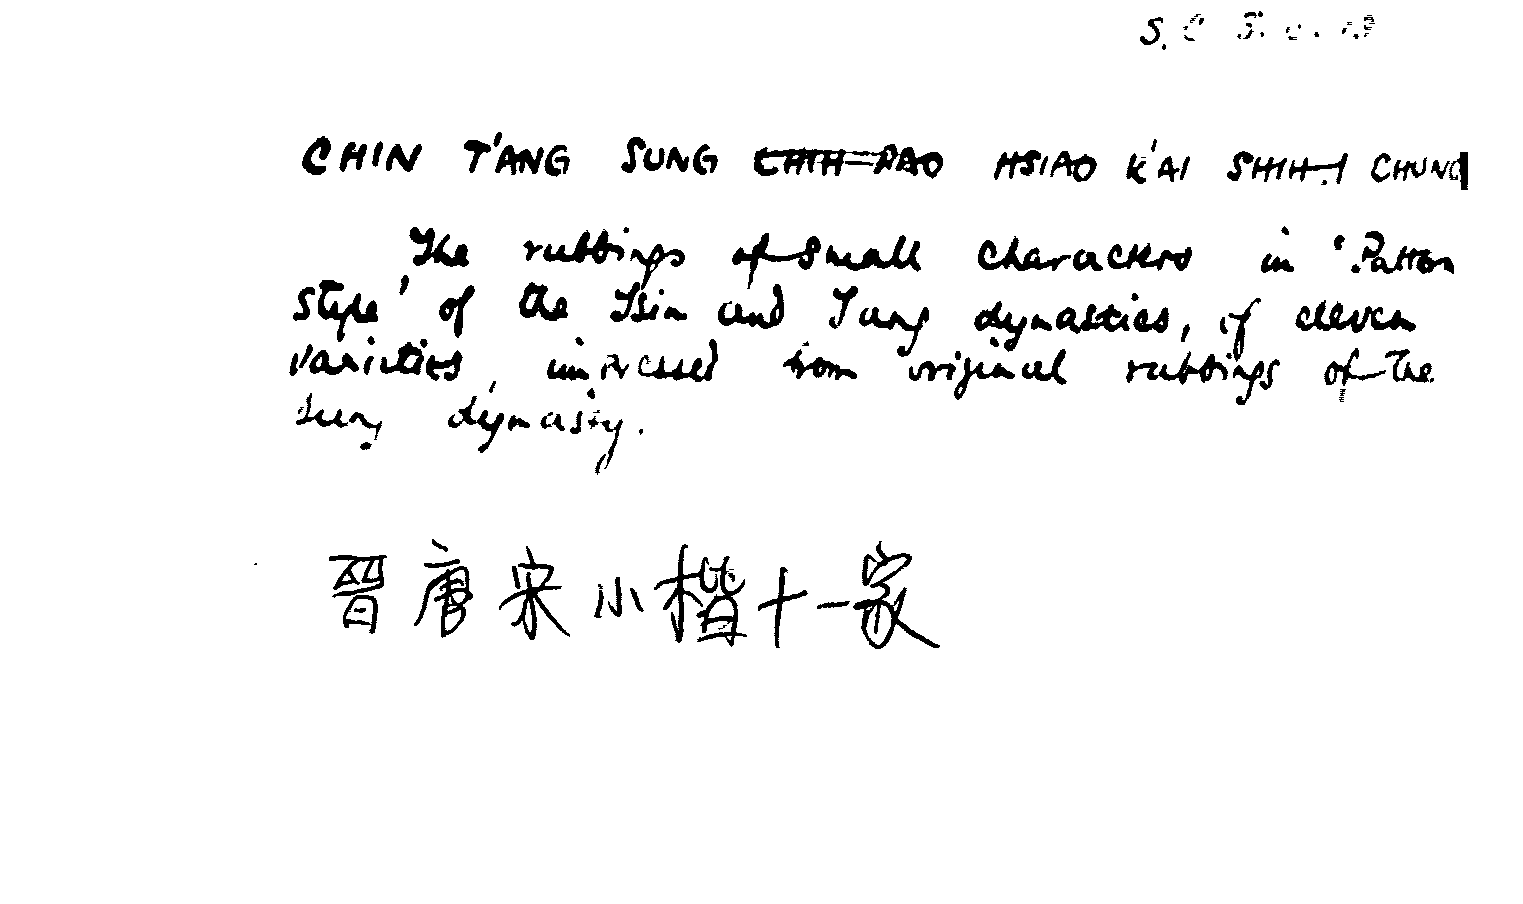 CHIN T'ANG SUNG CHIH PAO HSIAO K'AI SHIH-I CHUNG
The rubbings of small characters in 'Pattern
style' of the Tsin and Tang dynasties, of eleven
varieties, impressed from original rubbings of the
Sung dynasty.
晉唐宋小楷十一家